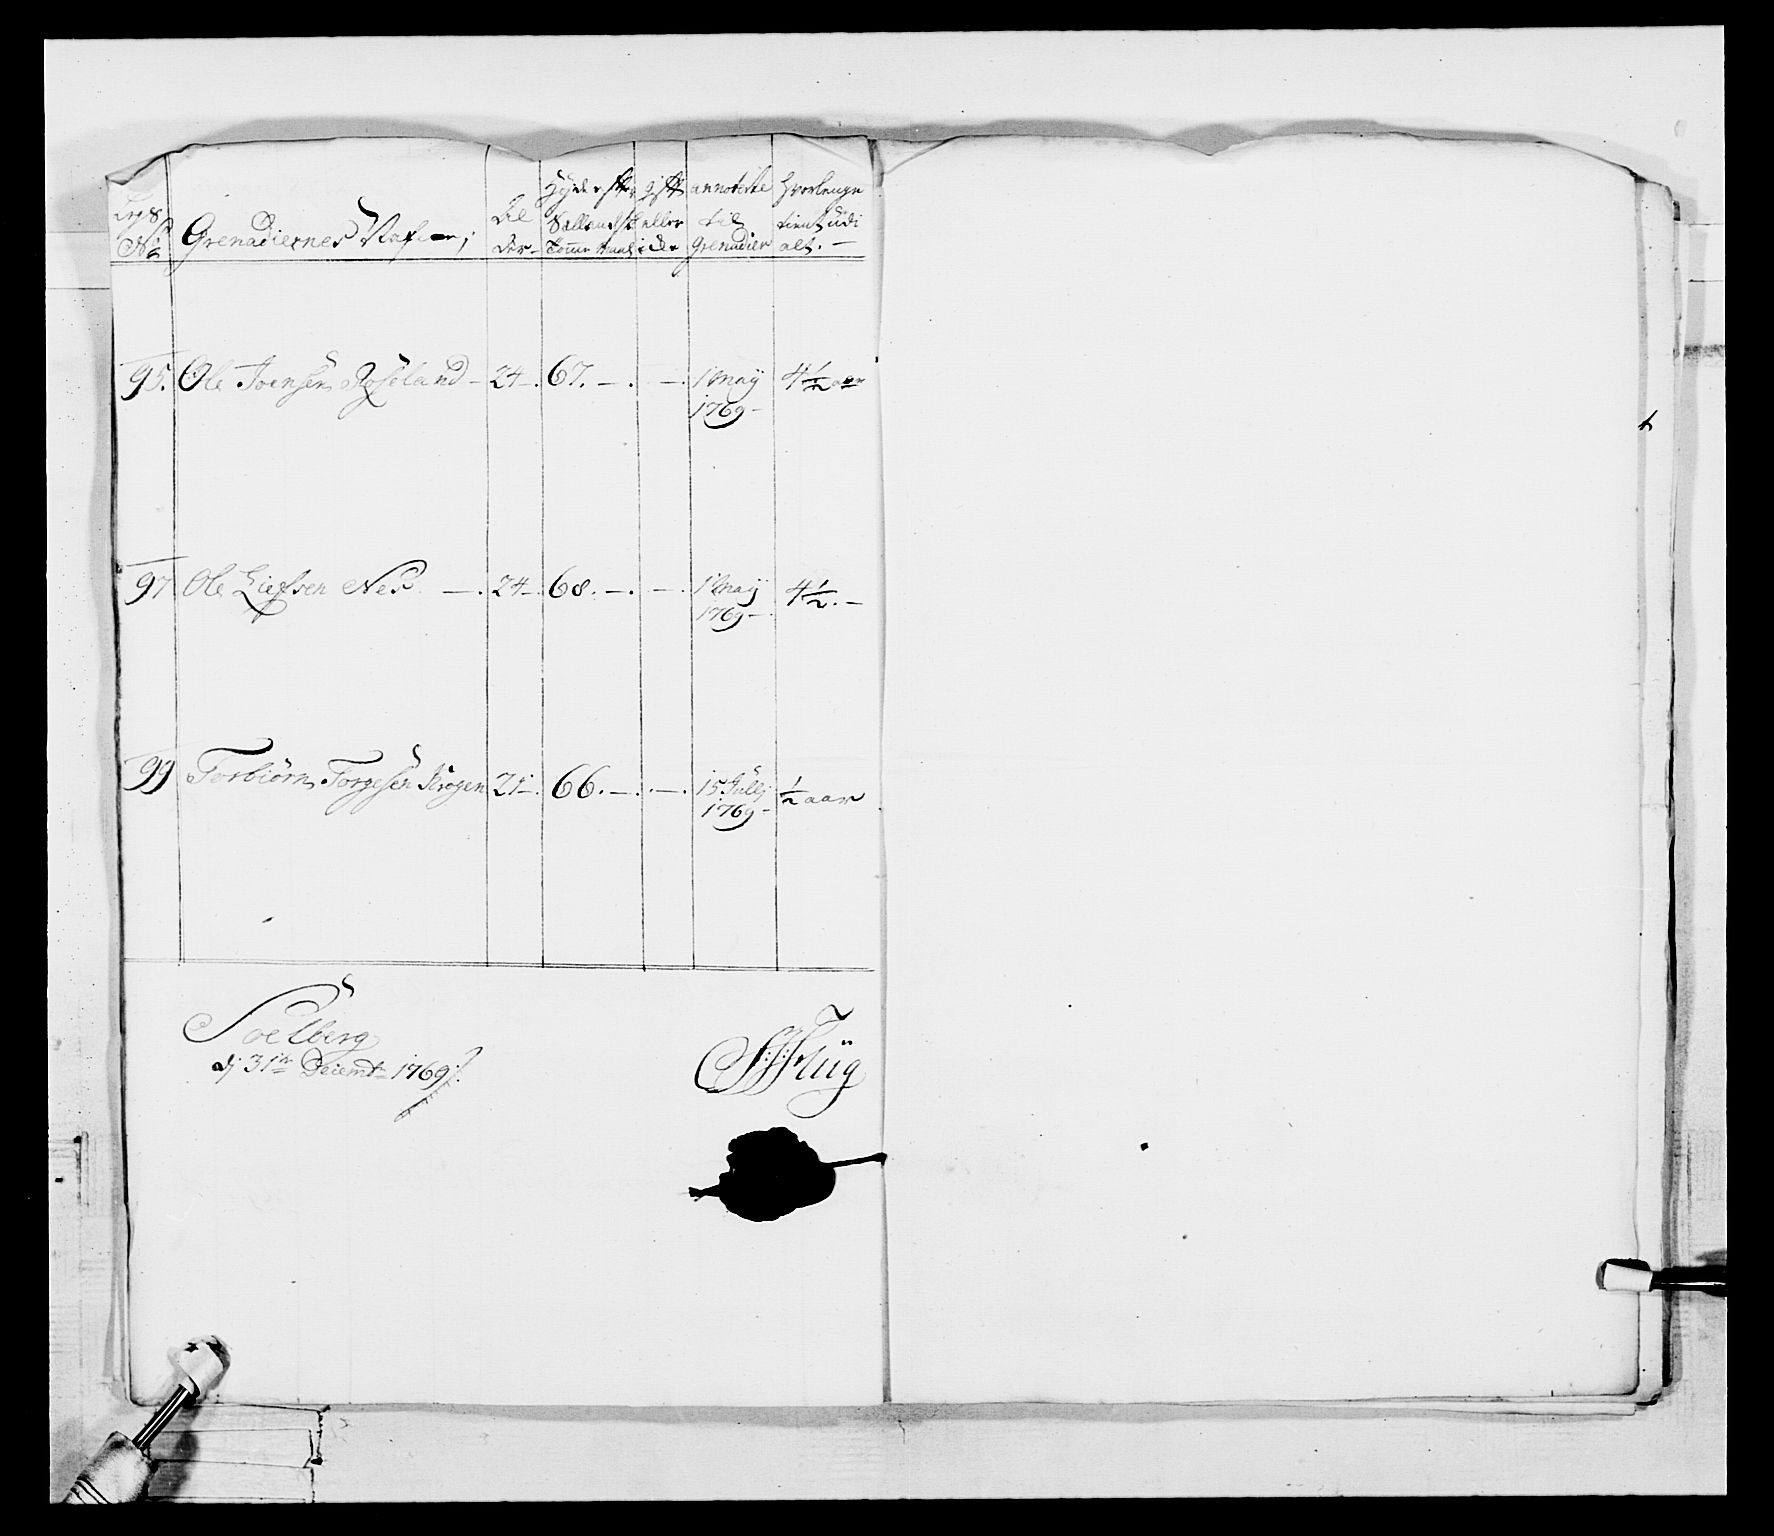 Lægs No Grenadiernes Nafne; Al der- Høyde efter Sællandsk Tomme Maal Gift eller ide annoterte til Grenadier hvorlenge tient udi alt. -
95. Ole Joensen Røseland - 24 -. 67. -. -. 1 May 1769 - 4½ aar
97 Ole Liefsen Næs. -. 24 -. 68. -. -. 1 May 1769 -. 4½. -
99 Torbiørn Torgesen Krogen 21 -. 66. -. -. 15 Julij 1769 - ½ aar
Soelberg
dj 31te Decembr 1769.